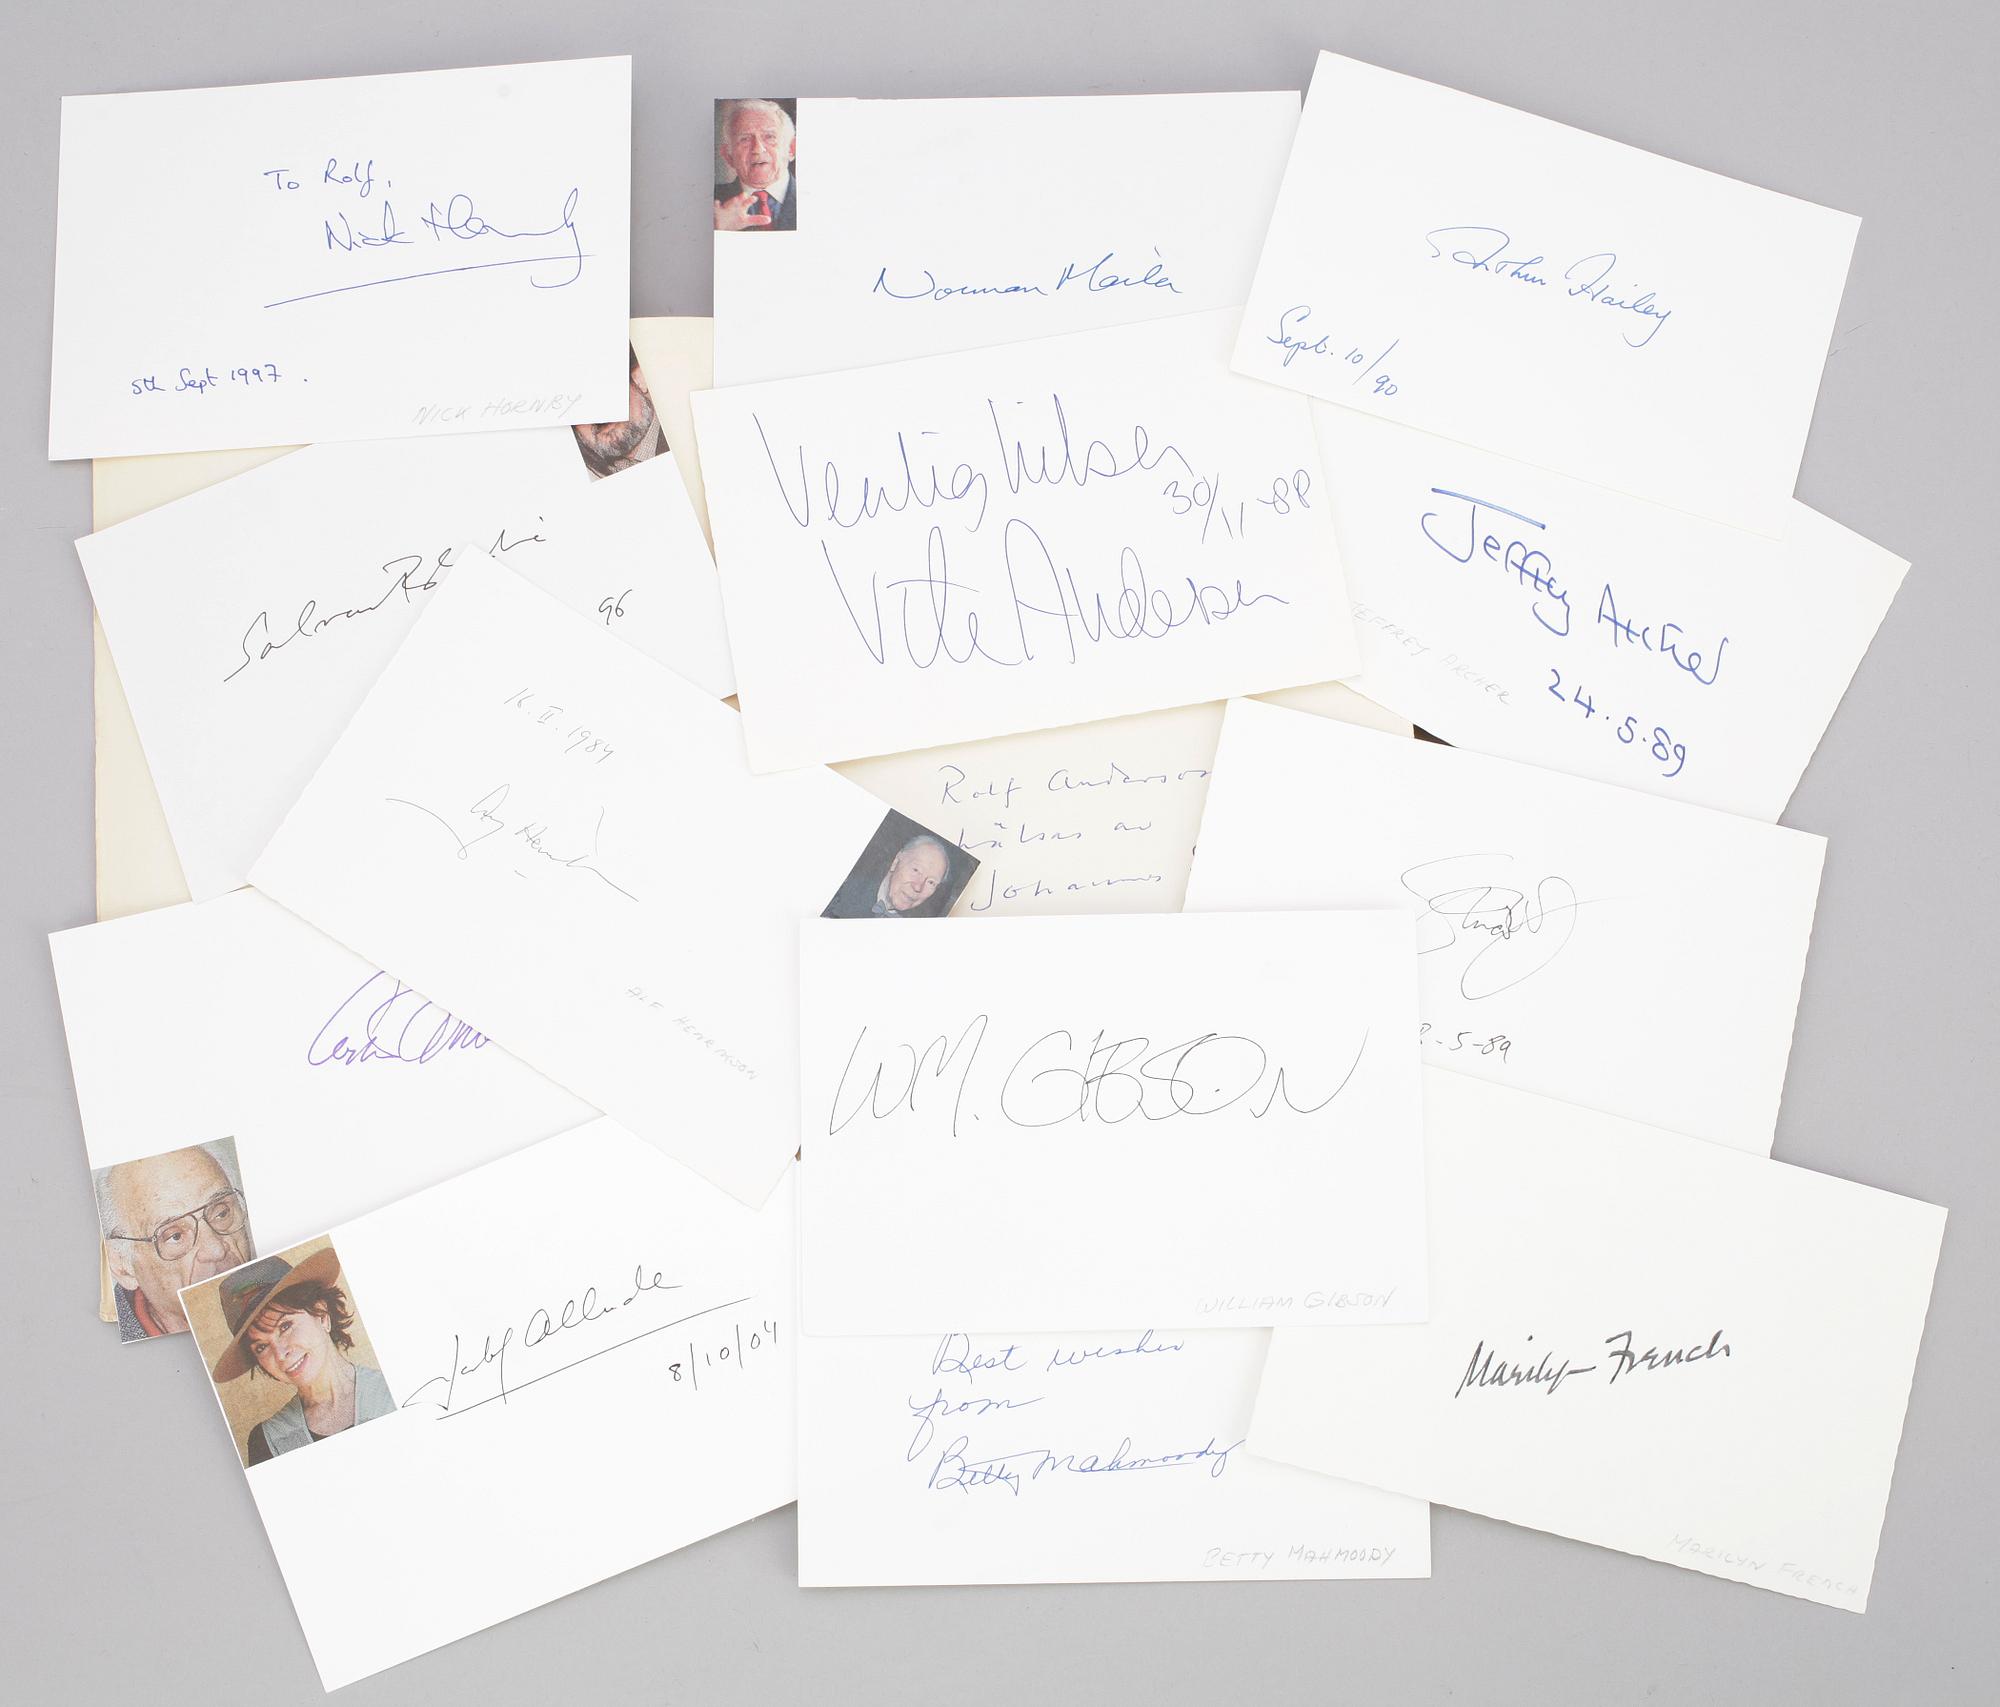 To Rolf,
Nick Hornby
5th Sept 1997.
NICK HORNBY
Norman Mailer
Arthur Hailey
Sept. 10/90
Salman
96
Vänlig hälsn
30/11-88
Vite Andersen
Jeffrey Archer
24.5.89
JEFFREY ARCHER
16.II.1984
Alf Henrikson
ALF HENRIKSON
Rolf Anderson
hälsas av
Johannes
-5-89
WM. GIBSON
WILLIAM GIBSON
Isabel Allende
8/10/04
Best wishes
from
Betty Mahmoody
BETTY MAHMOODY
Marilyn French
MARILYN FRENCH